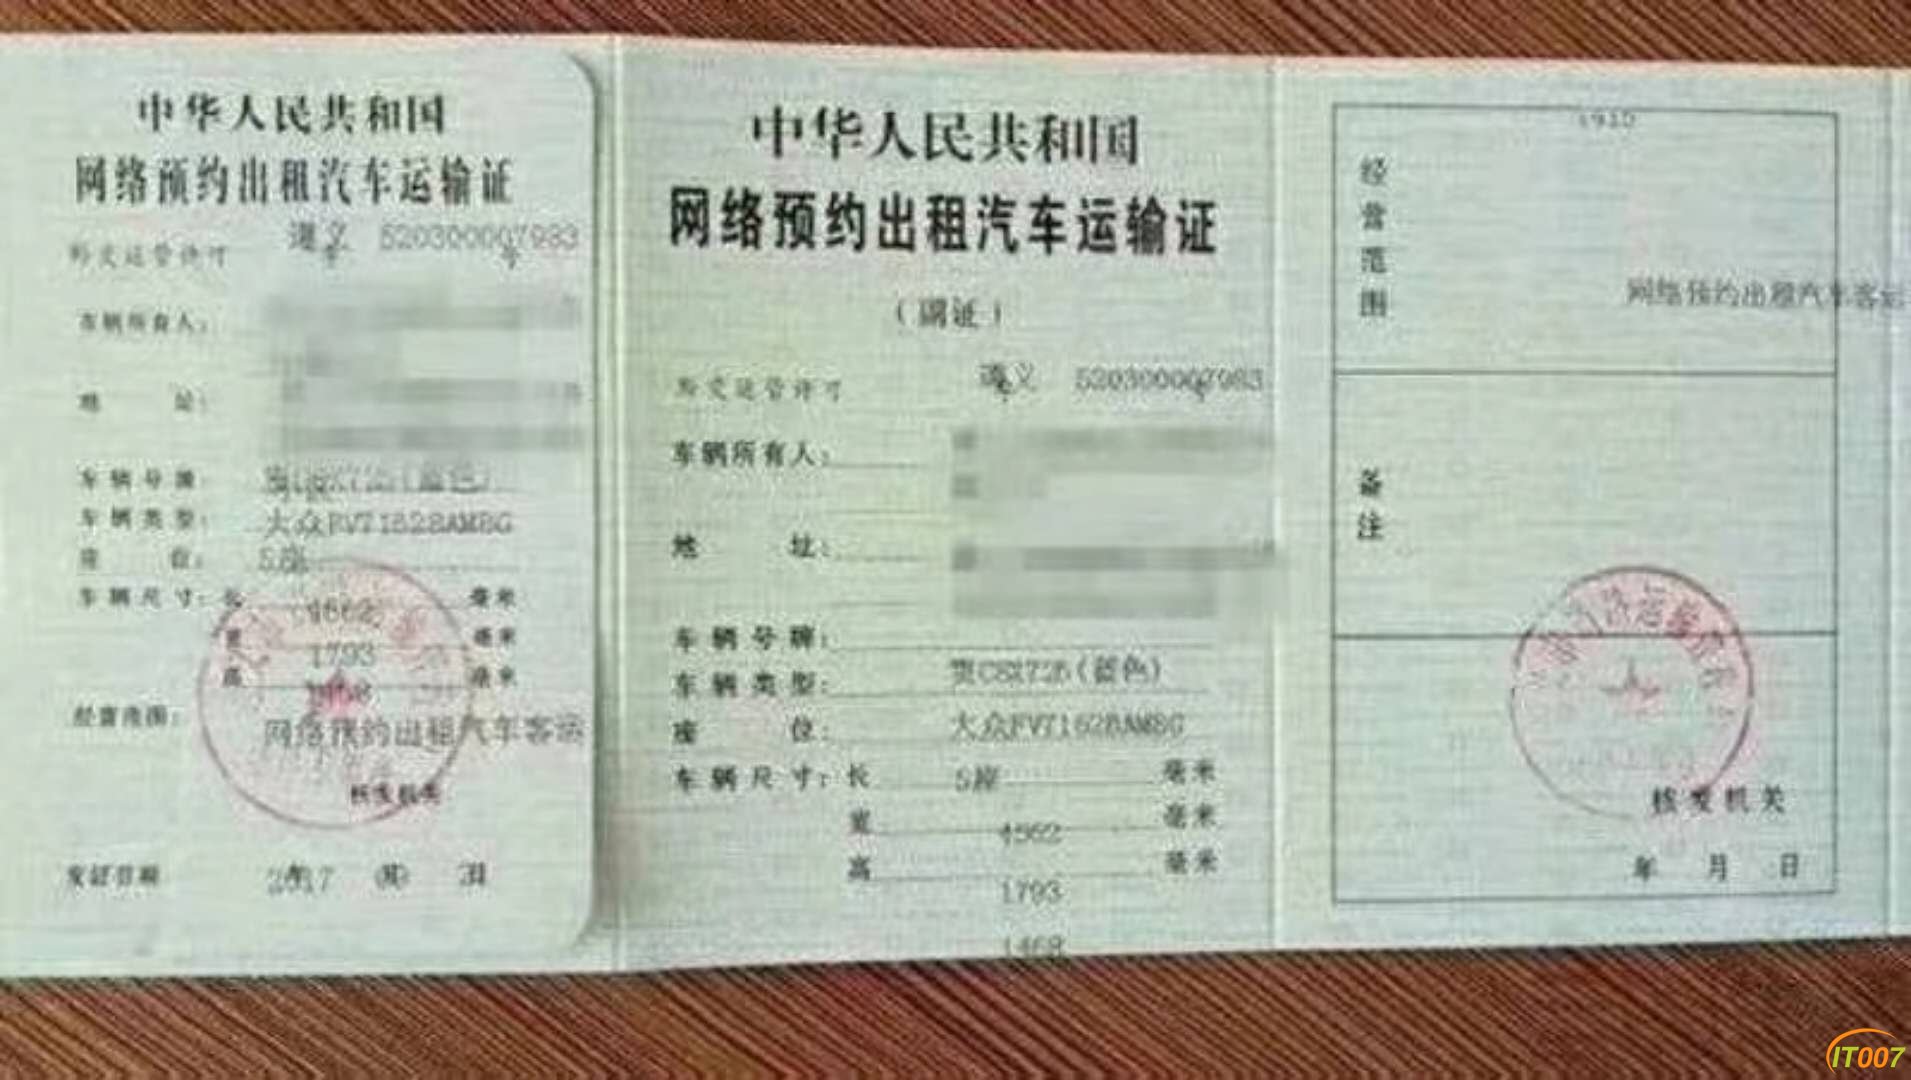 中华人民共和国
网络预约出租汽车运输证
交运管许可 遵义 字 520300007983 号
车辆所有人：
地 址：
车辆号牌：
车辆类型： 大众FV7162BAMBG
座 位： 5座
车辆尺寸：长 4562 毫米
宽 1793 毫米
高 1468 毫米
经营范围： 网络预约出租汽车客运
核发机关
发证日期 2017 年 月 日
中华人民共和国
网络预约出租汽车运输证
（副证）
交运管许可 遵义 字 520300007983 号
车辆所有人：
地 址：
车辆号牌：
贵C8X725(蓝色)
车辆类型：
大众FV7162BAMBG
座 位：
车辆尺寸：长 5座 毫米
宽 4562 毫米
高 毫米
1793
1468
经营范围
网络预约出租汽车客运
备注
道路运输
核发机关
年 月 日
IT007